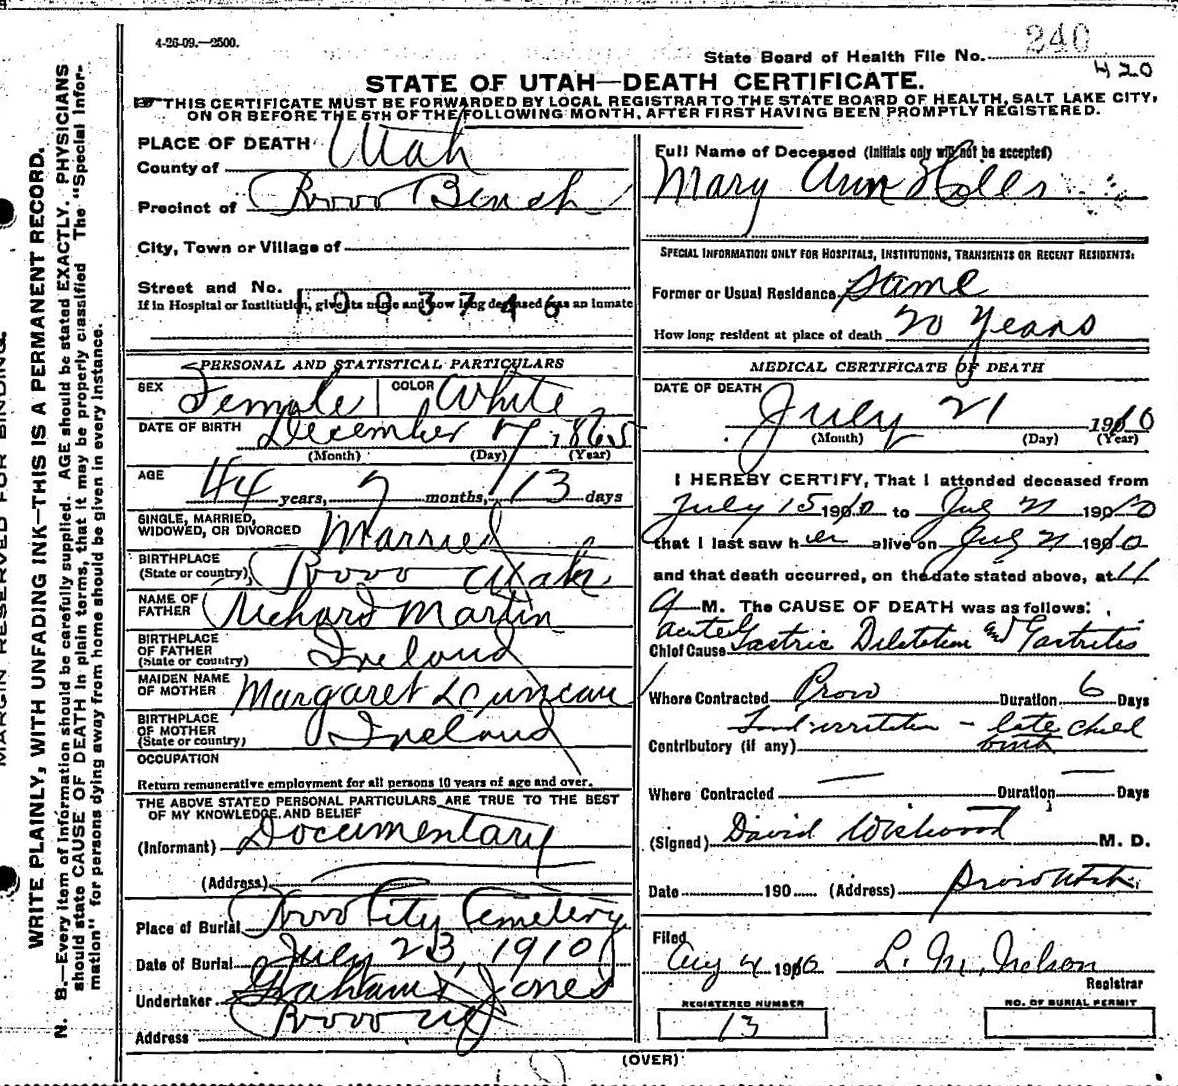 4-26-09.—2500.
State Board of Health File No. 240
420
STATE OF UTAH—DEATH CERTIFICATE.
THIS CERTIFICATE MUST BE FORWARDED BY LOCAL REGISTRAR TO THE STATE BOARD OF HEALTH, SALT LAKE CITY,
ON OR BEFORE THE 5TH OF THE FOLLOWING MONTH, AFTER FIRST HAVING BEEN PROMPTLY REGISTERED.
MARGIN RESERVED FOR BINDING.
WRITE PLAINLY, WITH UNFADING INK—THIS IS A PERMANENT RECORD.
N. B.—Every item of information should be carefully supplied. AGE should be stated EXACTLY. PHYSICIANS
should state CAUSE OF DEATH in plain terms, that it may be properly classified The "Special Infor-
mation" for persons dying away from home should be given in every instance.
PLACE OF DEATH
County of Utah
Precinct of Provo Bench
City, Town or Village of
Street and No.
If in Hospital or Institution, give its name and how long deceased was an inmate
1003746
PERSONAL AND STATISTICAL PARTICULARS
SEX Female COLOR White
DATE OF BIRTH December 8, 1865
(Month) (Day) (Year)
AGE 44 years, 7 months, 13 days
SINGLE, MARRIED,
WIDOWED, OR DIVORCED Married
BIRTHPLACE
(State or country) Provo Utah
NAME OF
FATHER Richard Martin
BIRTHPLACE
OF FATHER
(State or country) Ireland
MAIDEN NAME
OF MOTHER Margaret Duncan
BIRTHPLACE
OF MOTHER
(State or country) Ireland
OCCUPATION
Return remunerative employment for all persons 10 years of age and over.
THE ABOVE STATED PERSONAL PARTICULARS ARE TRUE TO THE BEST
OF MY KNOWLEDGE AND BELIEF
(Informant) Documentary
(Address)
Place of Burial Provo City Cemetery
Date of Burial July 23, 1910
Undertaker Graham & Jones
Address Provo City
Full Name of Deceased (Initials only will not be accepted)
Mary Ann
SPECIAL INFORMATION ONLY FOR HOSPITALS, INSTITUTIONS, TRANSIENTS OR RECENT RESIDENTS:
Former or Usual Residence Same
How long resident at place of death 20 years
MEDICAL CERTIFICATE OF DEATH
DATE OF DEATH
July 21 1910
(Month) (Day) (Year)
I HEREBY CERTIFY, That I attended deceased from
July 15 1910 to July 21 1910
that I last saw her alive on July 21 1910
and that death occurred, on the date stated above, at 11
a M. The CAUSE OF DEATH was as follows:
Chief Cause acute Gastric Dilatation and Gastritis
Where Contracted Provo Duration 6 Days
Contributory (if any) Food irritation — late child birth
Where Contracted — Duration — Days
(Signed) David Westwood M. D.
Date 190 (Address) Provo Utah
Filed
Aug 4 1910 L. M. Nelson
Registrar
REGISTERED NUMBER
13
NO. OF BURIAL PERMIT
(OVER)